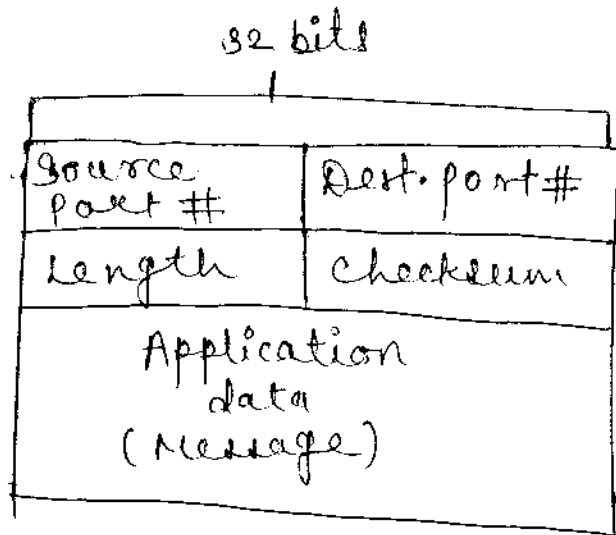 32 bits
Source Dest. port #
Port #
Length Checksum
Application
data
(Message)